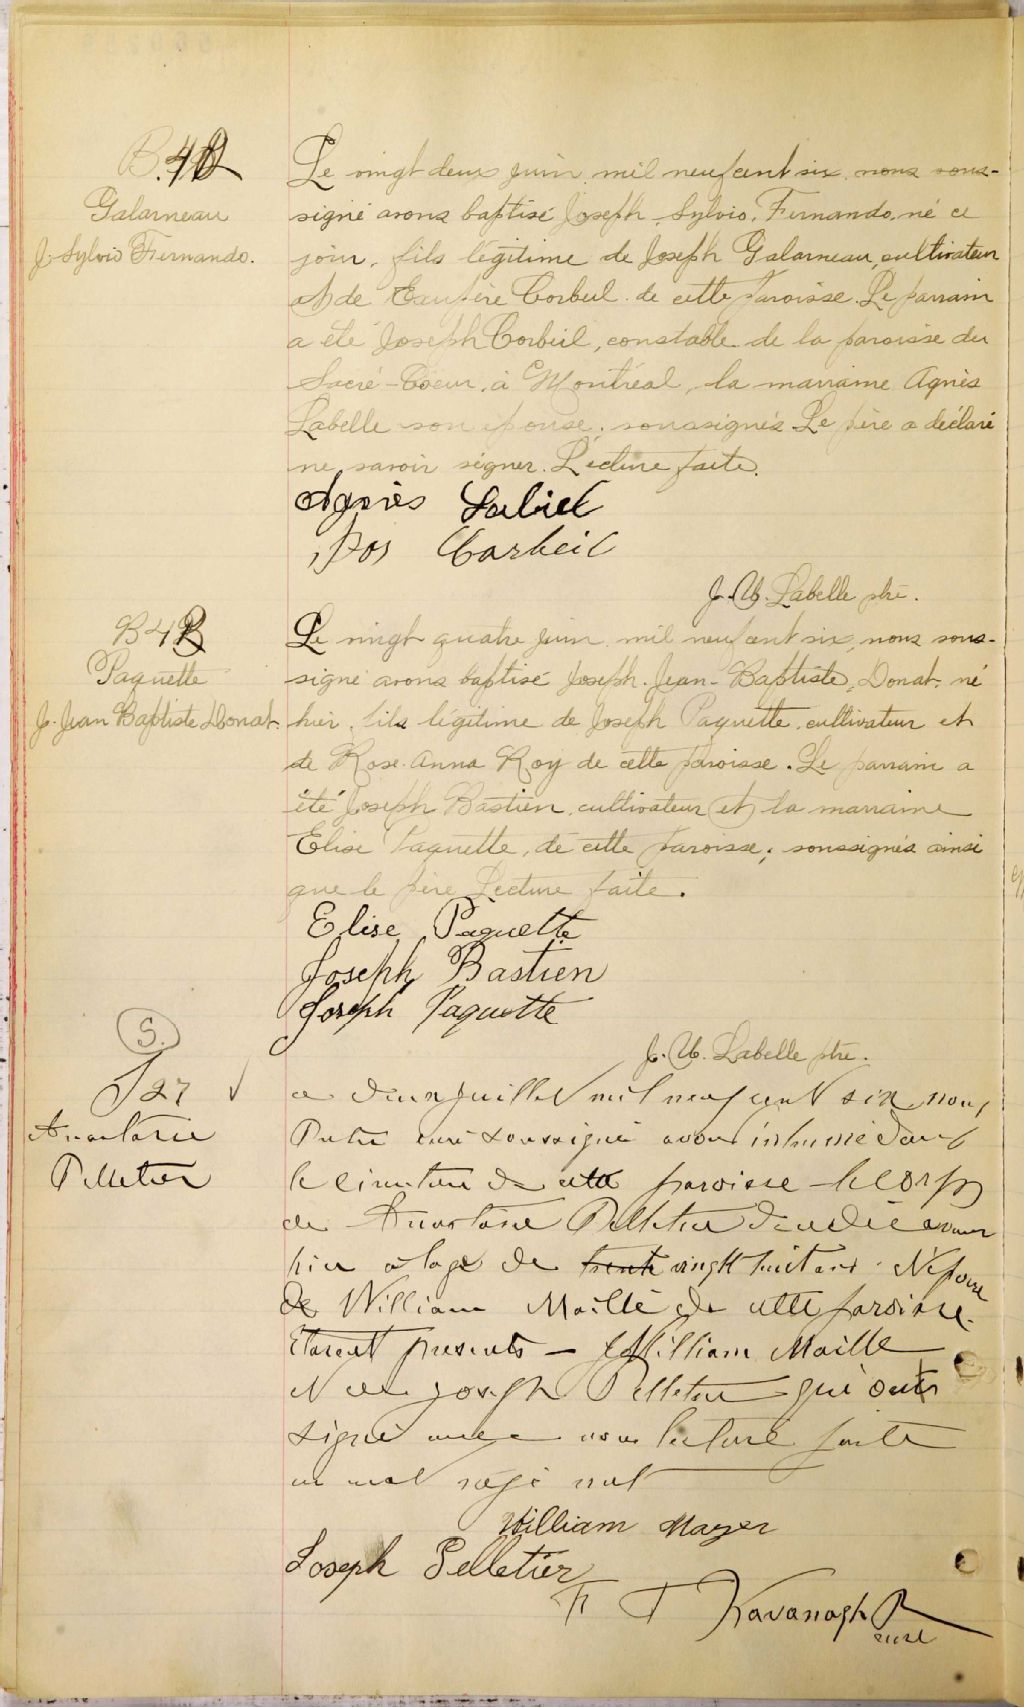 B.
Galarneau
J. Sylvio Fernando.
Le vingt deux juin mil neuf cent six nous sous-
signé avons baptisé Joseph, Sylvio, Fernando, né ce
jour, fils légitime de Joseph Galarneau, cultivateur
et de Corbeil de cette paroisse. Le parrain
a été Joseph Corbeil, constable de la paroisse du
Sacré-Coeur, à Montréal, la marraine Agnès
Labelle son épouse, soussignés. Le père a déclaré
ne savoir signer. Lecture faite.
Agnès
Jos Corbeil
J. U. Labelle ptre.
B 4
Paquette
J. Jean Baptiste Donat.
Le vingt quatre juin mil neuf cent six, nous sous-
signé avons baptisé Joseph. Jean-Baptiste, Donat, né
hier, fils légitime de Joseph Paquette, cultivateur et
de Rose-Anna Roy de cette paroisse. Le parrain a
été Joseph Bastien, cultivateur et la marraine
Elise Paquette, de cette paroisse, soussignés ainsi
que le père Lecture faite.
Elise Paquette
Joseph Bastien
Joseph Paquette
J. U. Labelle ptre.
S.
S 27
Anastasie
Pelletier
Ce deux juillet mil neuf cent six nous
Prêtre curé soussigné avons inhumé dans
le cimetière de cette paroisse le corps
de Anastasie Pelletier décédée avant
hier a lage de trente vingt huit ans. N épouse
de William Maille de cette paroisse.
Etaient presents – William Maille
et Joseph Pelletier qui ont
signé avec nous lecture faite
un mot rayé nul
William Mayer
Joseph Pelletier
F T Kavanagh P
curé